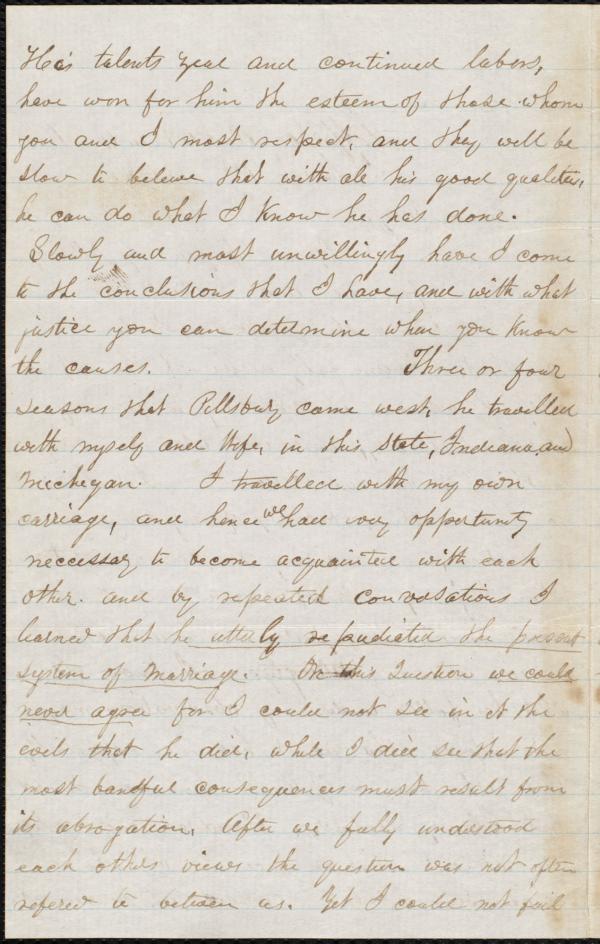 His talents zeal and continued labors,
have won for him the esteem of those whom
you and I most respect, and they will be
slow to beleive that with all his good qualities,
he can do what I know he has done.
Slowly and most unwillingly have I come
to the conclusions that I have, and with what
justice you can determine when you know
the causes. Three or four
seasons that Pillsbury came west, he travelled
with myself and Wife, in this State, Indiana, and
Michigan. I travelled with my own
carriage, and hence we had evry opportunity
neccessary to become acquainted with each
other. and by repeated convosations I
learned that he utterly repudiated the present
system of marriage. On this Question we could
never agree for I could not see in it the
evils that he did, while I did see that the
most baneful consequences must result from
its abrogation. After we fully understood
each others views the question was not often
refered to between us. Yet I could not fail